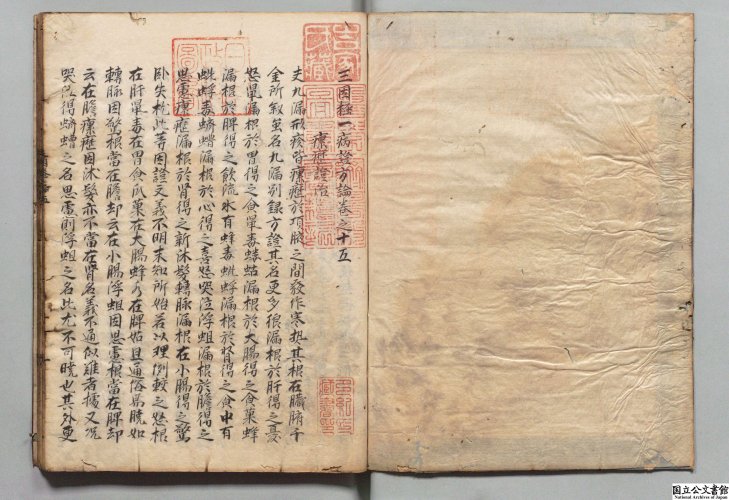 三因極一病證方論卷之十五
瘰癧證治
夫九漏形疾皆瘰癧於項腋之間發作寒熱其根在臟腑千
金所叙並名九漏別録方證其名更多狼漏根於肝得之憂
怒鼠漏根於胃得之食鼠毒螻蛄漏根於大腸得之食菓蜂
漏根於脾得之飲流水有蜂毒蚍蜉漏根於腎得之食中有
蚍蜉毒蠐螬漏根於心得之喜怒哭泣浮蛆漏根於膽得之
思慮瘰癧漏根於腎得之新沐髮轉脉漏根在小腸得之驚
卧失枕此等因證文義不明未知所始若以理例較之怒根
在肝鼠毒在胃食瓜菓在大腸蜂水在脾姑且通俗易曉如
轉脉因驚根當在膽却云在小腸浮蛆因思慮根當在脾却
云在膽瘰癧因沐髮亦不當在腎名義不通似難考據又況
哭泣得蠐螬之名思慮則浮蛆之名此尤不可曉也其外更
国立公文書館
National Archives of Japan